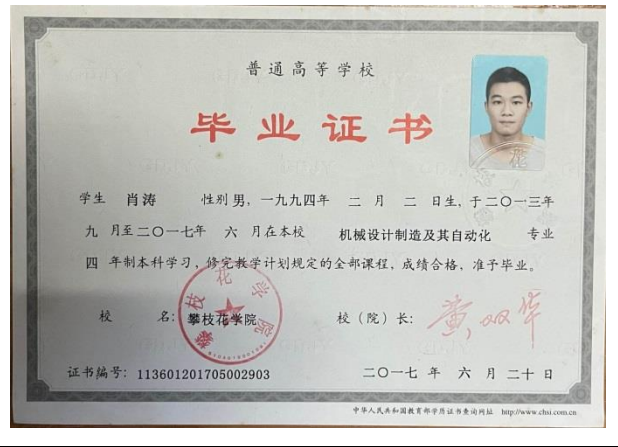 普通高等学校
毕业证书
学生 肖涛 性别男，一九九四年 二 月 二 日生，于二〇一三年
九 月至二〇一七年 六 月在本校 机械设计制造及其自动化 专业
四 年制本科学习，修完教学计划规定的全部课程，成绩合格，准予毕业。
校 名：攀枝花学院 校（院）长：黄双华
攀枝花学院
证书编号：113601201705002903 二〇一七 年 六 月 二十 日
中华人民共和国教育部学历证书查询网址 http://www.chsi.com.cn